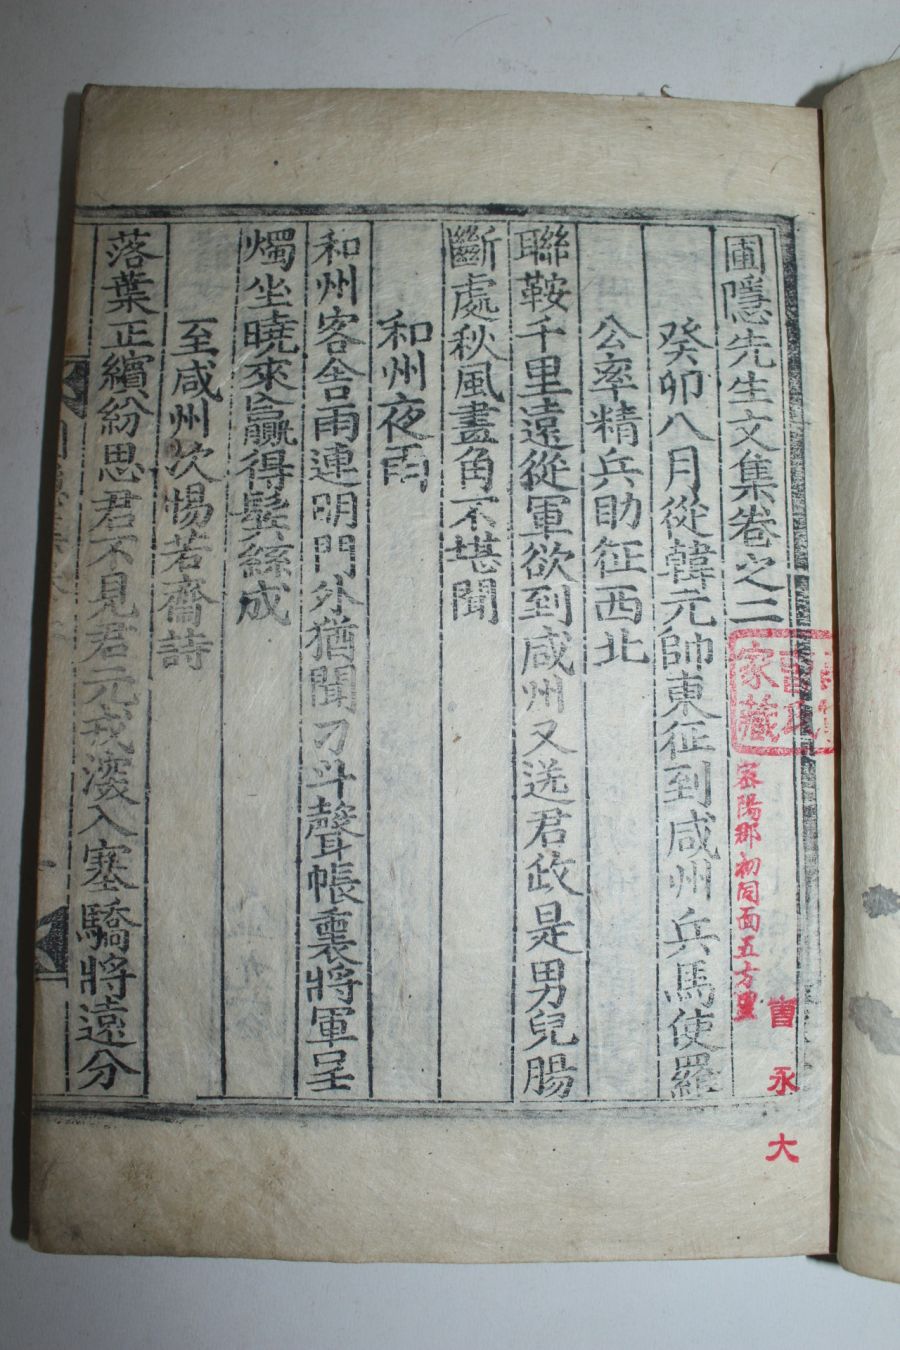 圃隱先生文集卷之二
癸卯八月從韓元帥東征到咸州兵馬使羅
公率精兵助征西北
聯鞍千里遠從軍欲到咸州又送君政是男兒腸
斷處秋風畫角不堪聞
和州夜雨
和州客舍雨連明門外猶聞刁斗聲帳裏將軍呈
燭坐曉來贏得鬂絲成
至咸州次惕若齋詩
落葉正繽紛思君不見君元戎深入塞驕將遠分
家藏
密陽郡初同面五方里
曺永大